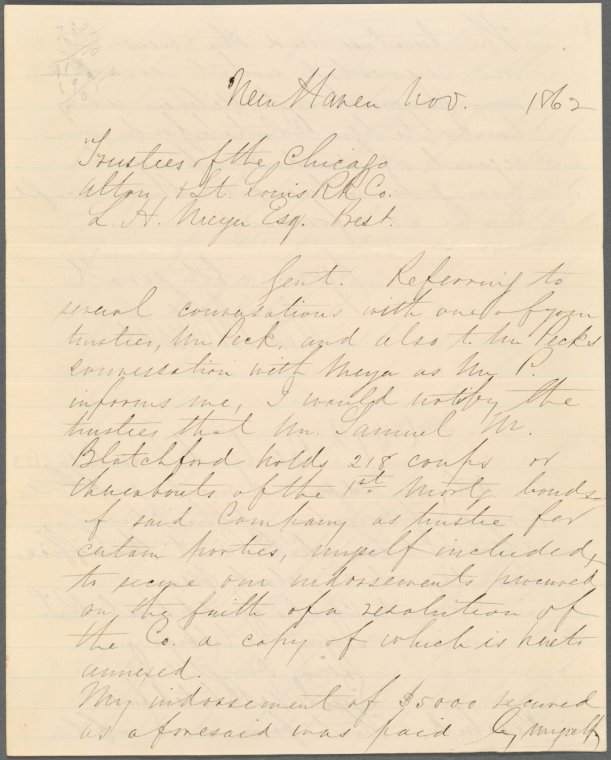 New Haven Nov. 1862
Trustees of the Chicago
Alton & St. Louis RR Co.
L. H. Meyer Esq. Prest.
Gent. Referring to
several conversations with one of your
trustees, Mr Peck, and also to Mr Pecks
conversation with Meyer as Mr P.
informs me, I would notify the
trustees that Mr. Samuel M.
Blatchford holds 218 coups or
thereabouts of the 1st Mortg bonds
of said Company as trustee for
certain parties, myself included,
to secure our indorsements procured
on the faith of a resolution of
the Co. a copy of which is hereto
annexed.
My indorsement of $5000 secured
as aforesaid was paid by myself,